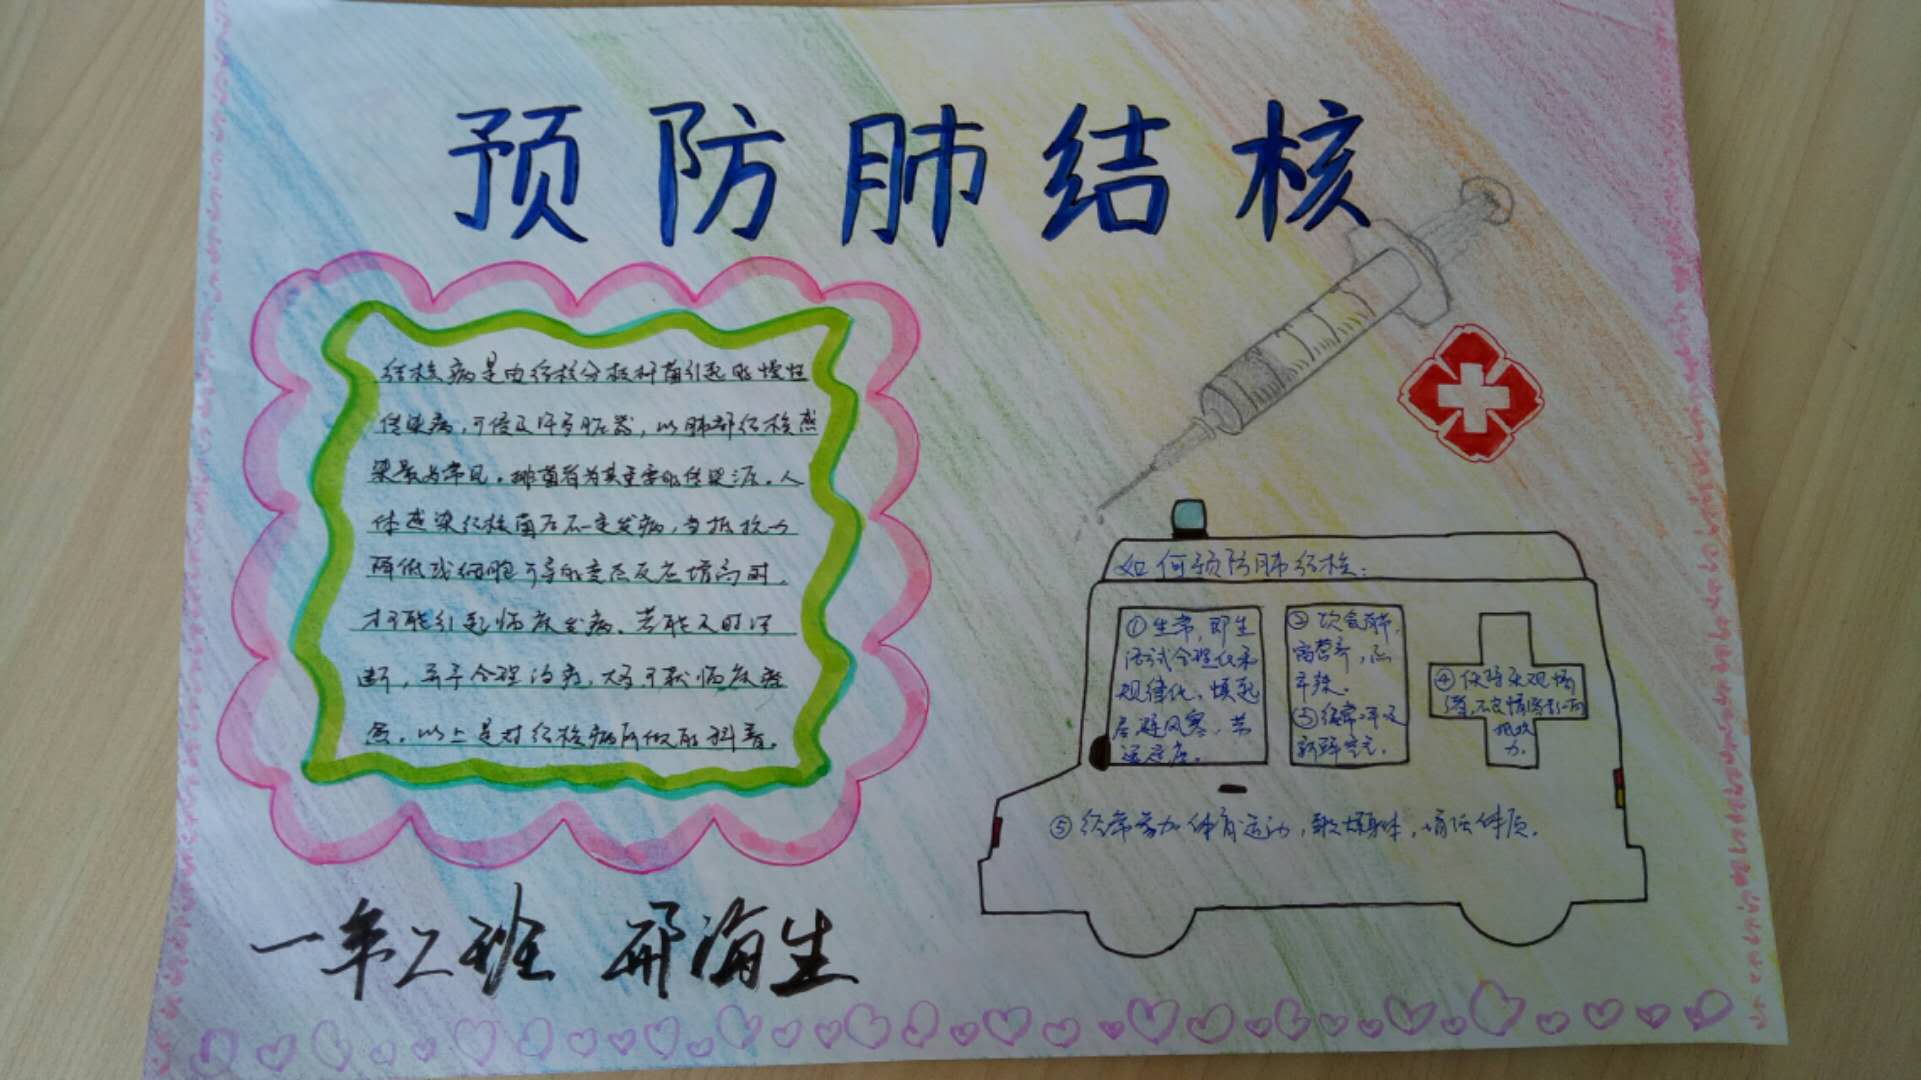 预防肺结核
结核病是由结核分枝杆菌引起的慢性
传染病,可侵及许多脏器,以肺部结核感
染最为常见。排菌者为其重要的传染源。人
体感染结核菌后不一定发病,当抵抗力
降低或细胞介导的变态反应增高时,
才可能引起临床发病。若能及时诊
断,并予合理治疗,大多可获临床痊
愈。以上是对结核病所做的科普。
一年2班 邢海生
如何预防肺结核:
①生常,即生
活试合理化和
规律化,慎起
居避风寒,节
③经常呼及
新鲜空气。
④保持乐观情
抵抗
力。
⑤经常参加体育运动,锻炼身体,增强体质。